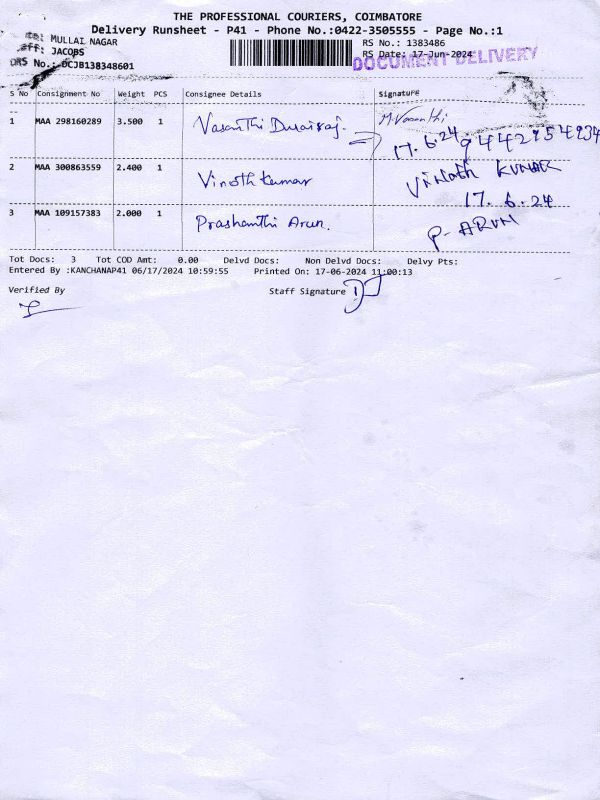 THE PROFESSIONAL COURIERS, COIMBATORE
Delivery Runsheet - P41 - Phone No.:0422-3505555 - Page No.:1
MULLAI NAGAR
RS No.: 1383486
JACOBS
RS Date: 17-Jun-2024
DOCUMENT DELIVERY
DRS No.: DCJB138348601
S No Consignment No Weight PCS Consignee Details Signature
1 MAA 298160289 3.500 1 Vasanthi Durairaj. M.Vasanthi
17.6.24 9442954934
2 MAA 300863559 2.400 1 Vinoth kumar Vinoth KUMAR
17.6.24
3 MAA 109157383 2.000 1 Prashanthi Arun. P-ARUN
Tot Docs: 3 Tot COD Amt: 0.00 Delvd Docs: Non Delvd Docs: Delvy Pts:
Entered By :KANCHANAP41 06/17/2024 10:59:55 Printed On: 17-06-2024 11:00:13
Verified By Staff Signature